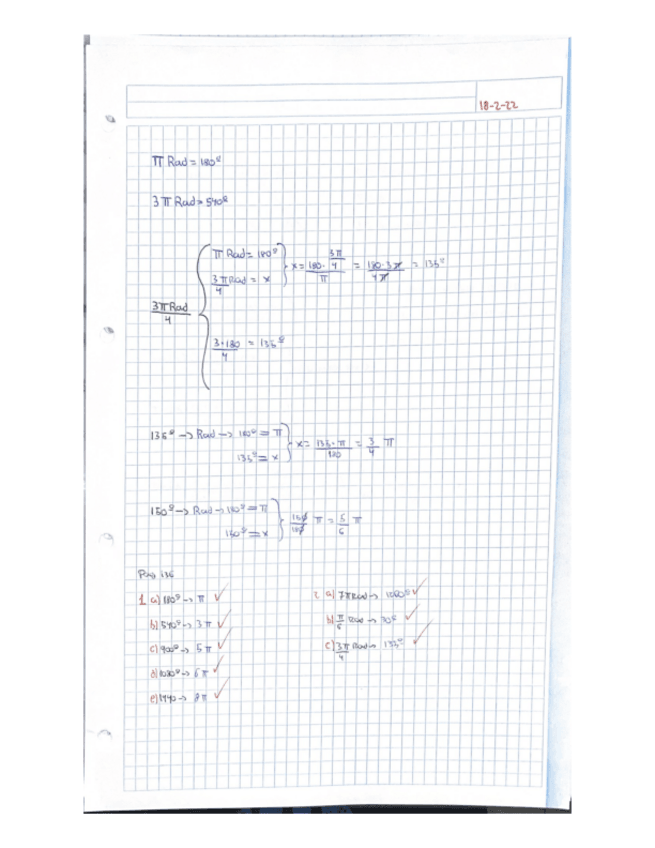 18-2-22
π Rad = 180º
3π Rad = 540º
3πRad/4 { π Rad = 180º
3π/4 Rad = x } x = 180·3π/4 / π = 180·3π/4π = 135º
3·180/4 = 135º
135º -> Rad -> 180º = π
135º = x } x = 135·π/180 = 3/4 π
150º -> Rad -> 180º = π
150º = x } 150/180 π = 5/6 π
Pag 136
1 a) 180º -> π ✓
b) 540º -> 3π ✓
c) 900º -> 5π ✓
d) 1080º -> 6π ✓
e) 1440 -> 8π ✓
2 a) 7π Rad -> 1260º ✓
b) π/6 Rad -> 30º ✓
c) 3π/4 Rad -> 135º ✓